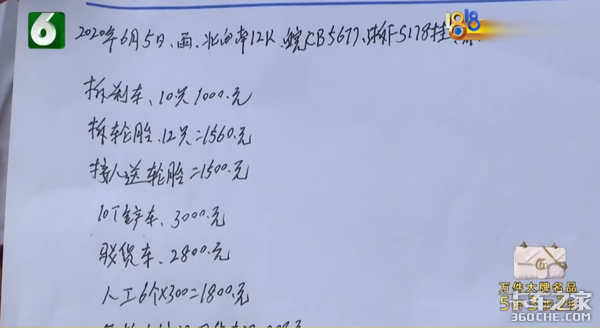 6
1818
2020年6月5日、雨、
12K
皖CB5677、
F5178挂
拆刹车、10只1000.元
拆轮胎、12只=1560.元
接人送轮胎=1500.元
10T铲车、3000.元
驳货车、2800.元
人工6个X300=1800.元
G
万件大牌名品
卡车之家
360che.com